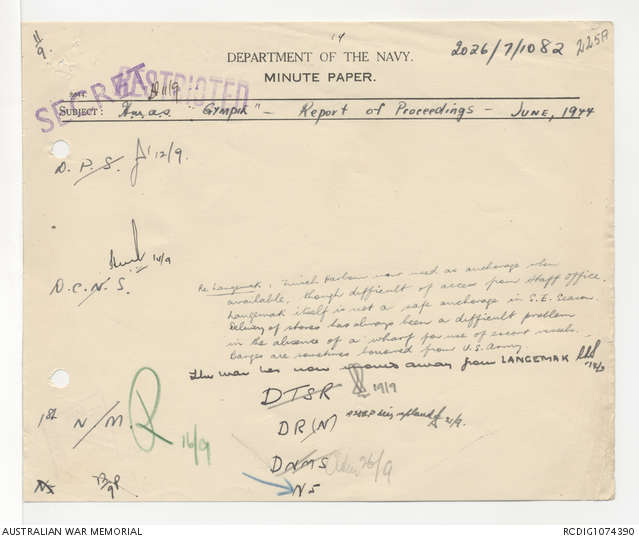 11/9.
14
2026/7/1082
225A
DEPARTMENT OF THE NAVY.
MINUTE PAPER.
SECRET
RESTRICTED
11/9
SUBJECT: H.M.A.S. "GYMPIE" - Report of Proceedings - JUNE, 1944
D. P. S. 12/9.
14/9
D. C. N. S.
Re Langemak: Finsch Harbour now used as anchorage when
available, though difficult of access from Staff Office.
Langemak itself is not a safe anchorage in S.E. Season.
Delivery of stores has always been a difficult problem
in the absence of a wharf for use of escort vessels.
Barges are sometimes borrowed from U.S. Army.
The war has now moved away from LANGEMAK
DTSR 19/9
1st N/M 16/9
DR(N) 21/9.
DNMS 26/9
N5
N5